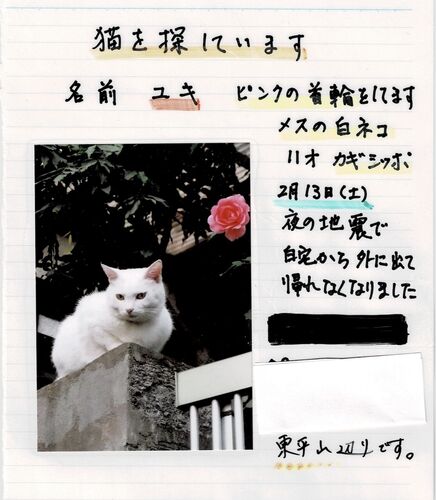 猫を探しています
名前 ユキ ピンクの首輪をしてます
メスの白ネコ
11才 カギシッポ
2月13日(土)
夜の地震で
自宅から外に出て
帰れなくなりました
東平山辺りです。